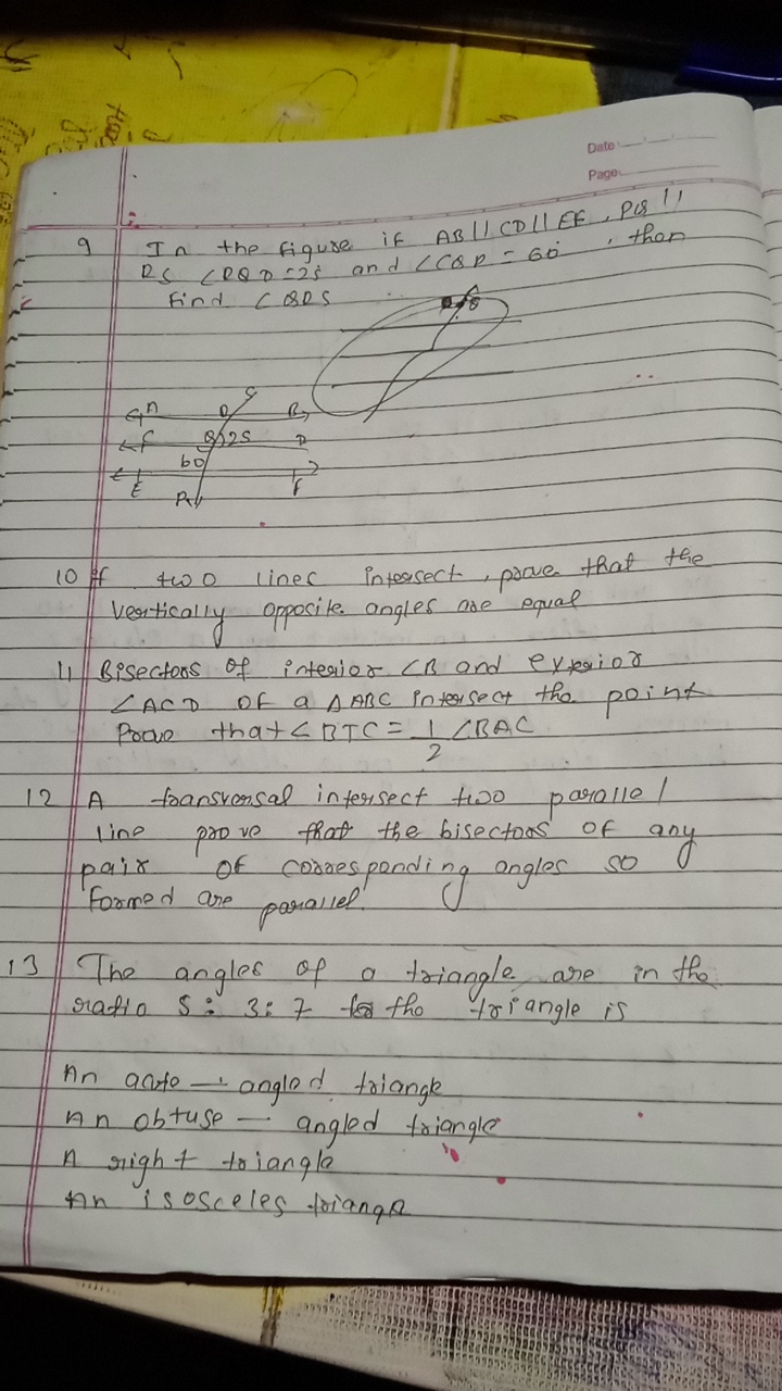 Date
Page
9 In the figure if AB || CD || EF, PQ ||
RS ∠RQD = 25 and ∠CQP = 60°, then
Find ∠QRS
A B
25 D
60
E F
10 If two lines intersect, prove that the
vertically opposite angles are equal
11 Bisectors of interior ∠B and exterior
∠ACD OF a ΔABC intersect the point
Prove that ∠BTC = 1/2 ∠BAC
12 A transversal intersect two parallel
line prove that the bisectors of any
pair of corresponding angles so
formed are parallel.
13 The angles of a triangle are in the
ratio 5 : 3 : 7 the triangle is
An acute - angled triangle
An obtuse - angled triangle
A right triangle
An isosceles triangle